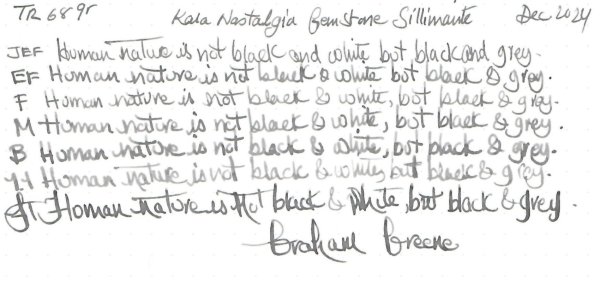 TR 68gr Kala Nostalgia Gemstone Sillimanite Dec 2024
JEF Human nature is not black and white but black and grey.
EF Human nature is not black & white but black & grey.
F Human nature is not black & white, but black & grey.
M Human nature is not black & white, but black & grey.
B Human nature is not black & white, but black & grey.
Human nature is not black & white, but black & grey.
Human nature is Not black & white, but black & grey.
Graham Greene